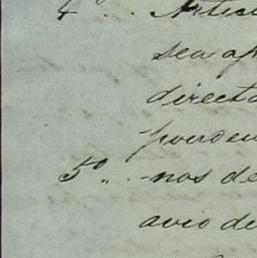 4º.. Artic
sea ap
directa
ponden
5º.. nos de
avio de